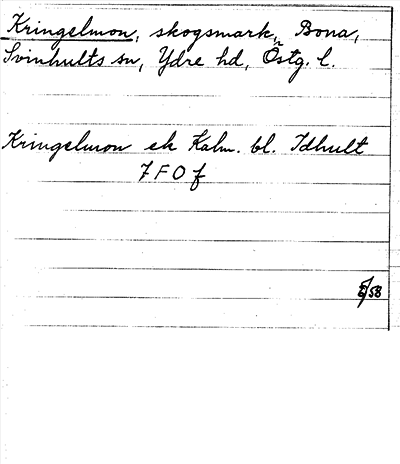 Kringelmon, skogsmark, Bona,
Svinhults sn, Ydre hd, Östg. l.
Kringelmon ek Kalm. bl. Idhult
7 F O f
/58